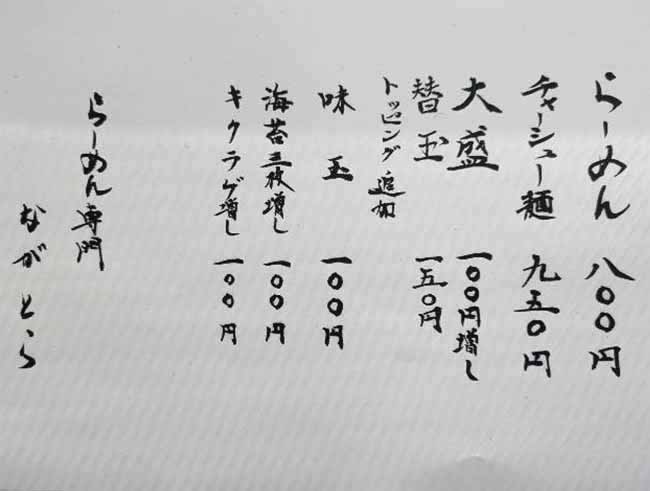 らーめん 八〇〇円
チャーシュー麺 九五〇円
大盛 一〇〇円増し
替玉 一五〇円
トッピング追加
味玉 一〇〇円
海苔三枚増し 一〇〇円
キクラゲ増し 一〇〇円
らーめん専門
ながとら